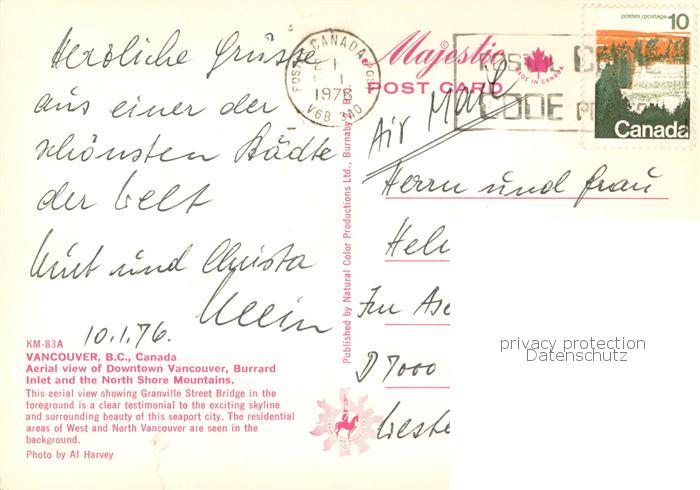 Herzliche Grüsse
aus einer der
schönsten Städte
der Welt
Kurt und Christa
Klein
10.1.76.
KM-83A
VANCOUVER, B.C., Canada
Aerial view of Downtown Vancouver, Burrard
Inlet and the North Shore Mountains.
This aerial view showing Granville Street Bridge in the
foreground is a clear testimonial to the exciting skyline
and surrounding beauty of this seaport city. The residential
areas of West and North Vancouver are seen in the
background.
Photo by Al Harvey
Published by Natural Color Productions Ltd., Burnaby 2, B.C.
CANADA
POST
POST
1976
V6B 3A0
Majestic
POST CARD
MADE IN CANADA
POSTAL CODE
CODE
postes/postage 10
Canada
Air Mail
Herrn und Frau
Hel
D 7000
privacy protection
Datenschutz